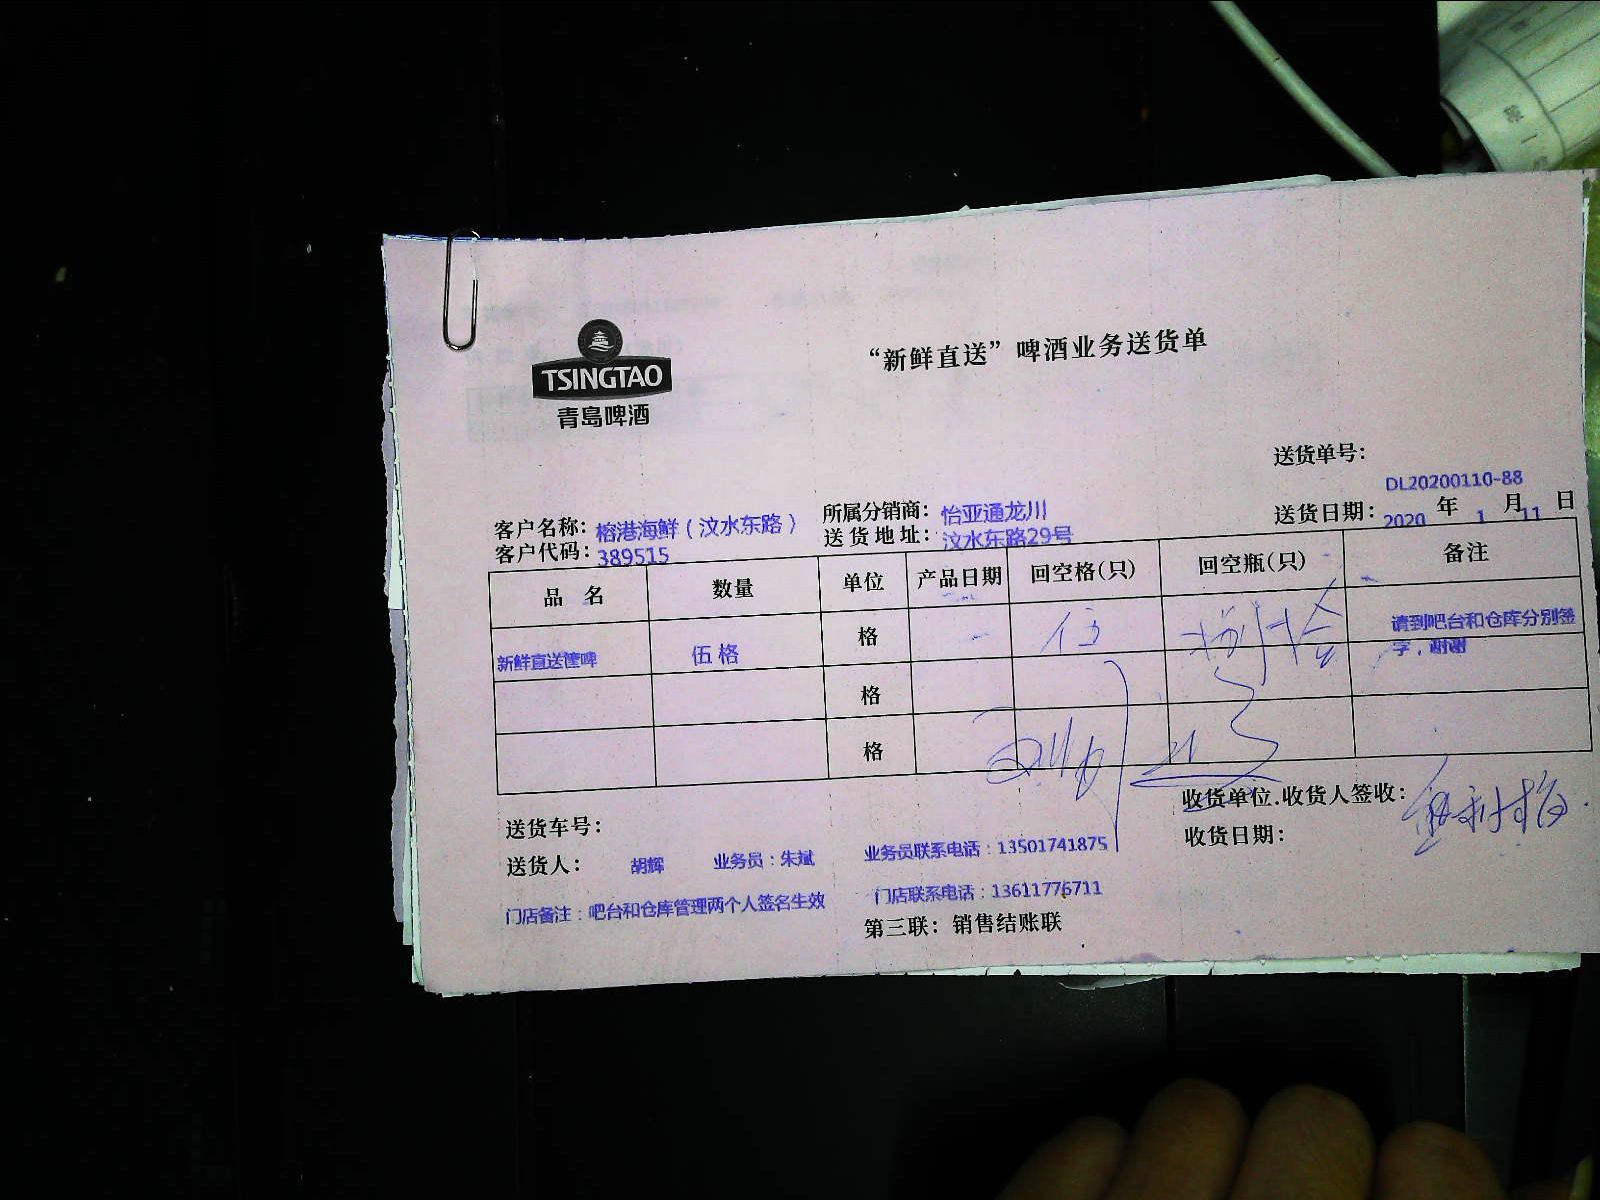 TSINGTAO
青岛啤酒
“新鲜直送”啤酒业务送货单
送货单号：
DL20200110-88
客户名称：榕港海鲜（汶水东路） 所属分销商：怡亚通龙川 送货日期：2020 年 1 月 11 日
客户代码：389515 送货地址：汶水东路29号
品 名 数量 单位 产品日期 回空格(只) 回空瓶(只) 备注
新鲜直送筐啤 伍格 格 伍 请到吧台和仓库分别签
字，谢谢
格
格
收货单位.收货人签收：
送货车号： 收货日期：
送货人： 胡辉 业务员：朱斌 业务员联系电话：13501741875
门店备注：吧台和仓库管理两个人签名生效 门店联系电话：13611776711
第三联：销售结账联